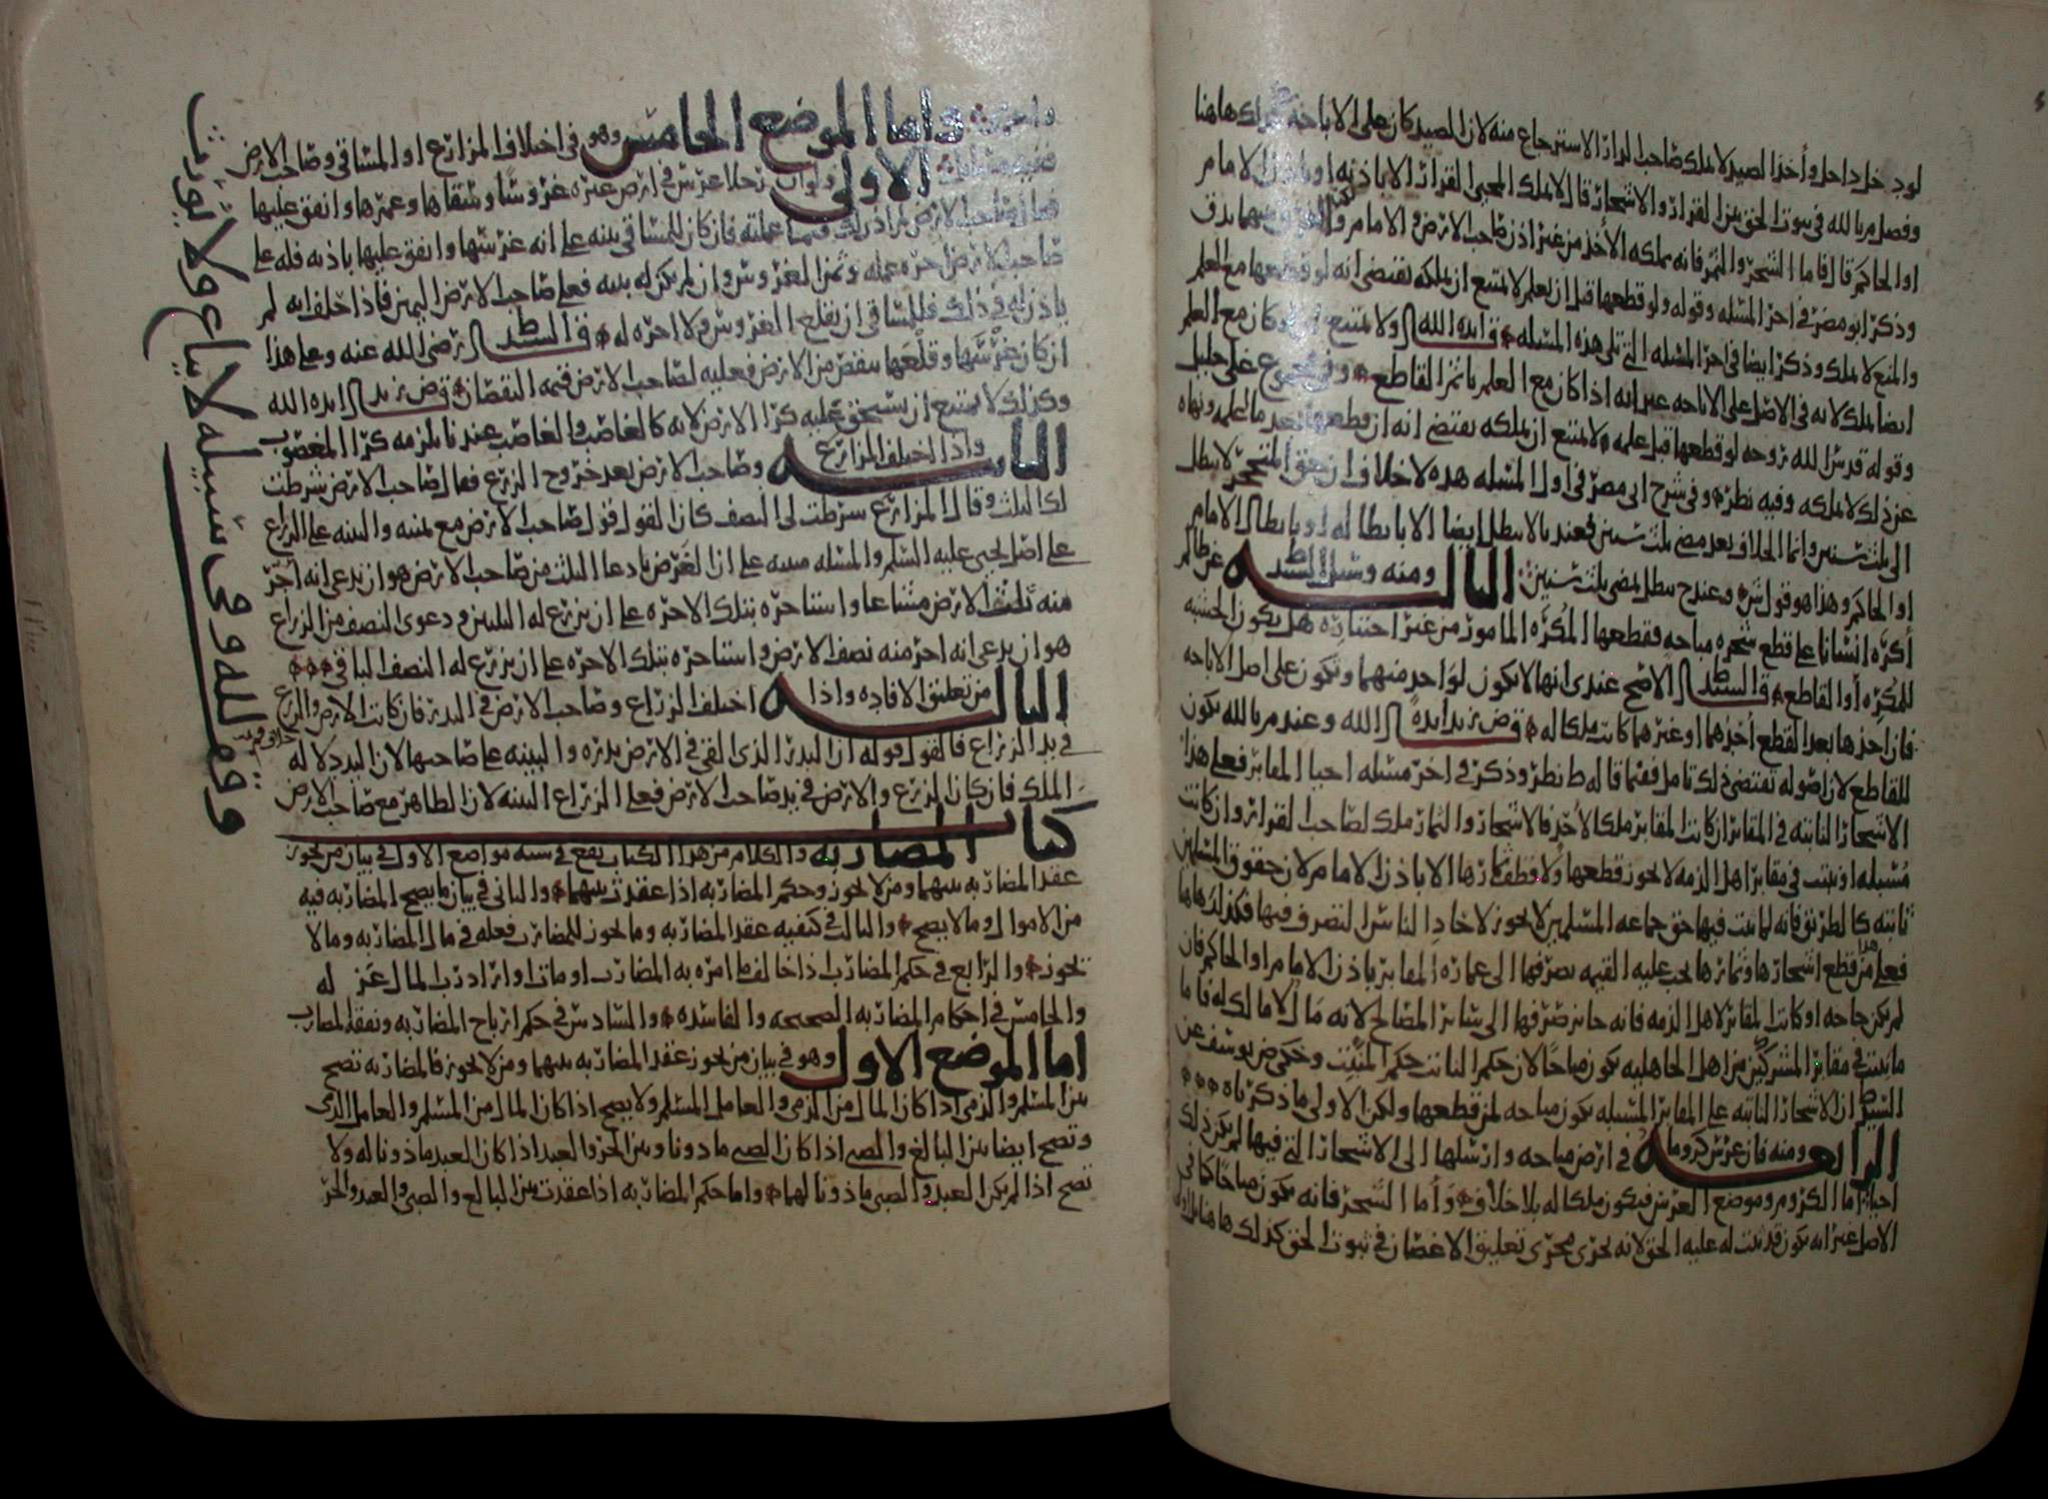 لو دخل داخل وأخذ الصيد لا ملك صاحب الدار الاسترجاع منه لان الصيد كان على الاباحة كذلك هاهنا
وفصل م بالله في ثبوت الحق بين القرار والاشجار قال لا يملك المحيى القرار الا باذنه او باذن الامام
او الحاكم قال فاما الشجر والثمر فانه يملكه الأخذ من غير اذن صاحب الارض والامام والفرق بينهما يدق
وذكر ابو مضر في اخر المسئله وقوله ولو قطعها قبل ان يعلم لا يمتنع ان يملكه يقتضي انه لو قطعها مع العلم
والمنع لا يملك وذكر ايضا في اخر المسئله التي تلي هذه المسئله ايده الله ولا يمتنع لو كان مع العلم
ايضا يملك لانه في الاصل على الاباحه غير انه اذا كان مع العلم ياثم القاطع وفي مجموع علي خليل
وقوله قدس الله روحه لو قطعها قبل علمه لا يمتنع ان يملكه يقتضي انه ان قطعها بعد ما علم ونهاه
عن ذلك لا يملكه وفيه نظر وفي شرح ابي مضر في اول المسئله هذه لا خلاف ان حق المتحجر لا يبطل
الى ثلث سنين وانما الخلاف بعد مضي ثلث سنين فعندنا لا يبطل ايضا الا بابطاله او بابطال الامام
او الحاكم وهذا هو قول ش وعند ح يبطل لمضي ثلث سنين الثالثه ومنه وسئل السيد ط عن ظالم
أكره انسانا على قطع شجره مباحه فقطعها المكره المامور من غير اختياره هل يكون الخشبه
للمكره أو القاطع قال السيد ط الاصح عندي انها لا تكون لواحد منهما وتكون على اصل الاباحه
فان اخذها بعد القطع أخذهما او غيرهما كانت ملكا له قال ض زيد ايده الله وعند م بالله يكون
للقاطع لان اصوله تقتضي ذلك تامل فيما قاله ط نظر وذكر في اخر مسئله احيا المقابر فعلى هذا
الاشجار النابته في المقابر ان كانت المقابر ملكا لأخذ فالاشجار والثمار ملك لصاحب القرار وان كانت
مسبله او نبتت في مقابر اهل الذمه لا يجوز قطعها ولا قطف ثمارها الا باذن الامام لان حقوق المسلمين
ثابته كالطريق فانه لما ثبت فيها حق جماعه المسلمين لا يجوز لاحاد الناس التصرف فيها فكذلك هاهنا
فعلى هذا من قطع اشجارها وثمارها يجب عليه القيمه بصرفها الى عماره المقابر باذن الامام او الحاكم فان
لم يكن حاجه او كانت المقابر لاهل الذمه فانه جايز صرفها الى سائر المصالح لانه مال لا مالك له فاما
ما ينبت في مقابر المشركين من اهل الجاهليه يكون مباحا لان حكم النابت حكم المنبت وحكى ض يوسف عن
السيد ط ان الاشجار النابته على المقابر المسبله يكون مباحه لمن قطعها ولكن الاولى ما ذكرناه
الرابعه ومنه فان غرس كروما في ارض مباحه وارسلها الى الاشجار التي فيها لم يكن ذلك
احياء اما الكروم وموضع الغرس فيكون ملكا له بلا خلاف وأما الشجر فانه يكون مباحا كما في
الاصل غير انه يكون قد ثبت له عليه الحق لانه يجري مجرى تعليق الاغصان في ثبوت الحق كذلك هاهنا
واما الموضع الخامس وهو في اختلاف المزارع او المساقي وصاحب الارض
ففيه مسائل الاولى ولو ان رجلا غرس في ارض غيره غروسا وسقاها وعمرها وانفق عليها
فقال صاحب الارض لم اذن لك فيما عملته فان كان للمساقي بينه على انه غرسها وانفق عليها باذنه فله على
صاحب الارض اجره عمله وثمن الغروس وان لم يكن له بينه فعلى صاحب الارض اليمين فاذا حلف انه لم
ياذن له في ذلك فللمساقي ان يقلع الغروس ولا اجره له قال السيد ط رضي الله عنه وعلى هذا
ان كان غرسها وقلعها ينقص من الارض فعليه لصاحب الارض قيمه النقصان قال ض زيد ايده الله
وكذلك لا يمتنع ان يستحق عليه كرا الارض لانه كالغاصب والغاصب عندنا يلزمه كرا المغصوب
الثانيه واذا اختلف المزارع وصاحب الارض بعد خروج الزرع فقال صاحب الارض شرطت
لك الثلث وقال المزارع شرطت لي النصف كان القول قول صاحب الارض مع يمينه والبينه على الزراع
على اصل يحيى عليه السلم والمسئله مبنيه على ان الغرض بادعا الثلث من صاحب الارض هو ان يدعي انه أجر
منه ثلث الارض مشاعا واستاجره بتلك الاجره على ان يزرع له الثلثين ودعوى النصف من الزراع
هو ان يدعي انه اجر منه نصف الارض واستاجره بتلك الاجره على ان يزرع له النصف الباقي
الثالثه من تعليق الافاده واذا اختلف الزراع وصاحب الارض في البذر فان كانت الارض والزرع
في يد الزراع فالقول قوله ان البذر الذي القي في الارض بذره والبينه على صاحبها لان اليد دلاله
الملك فان كان الزرع والارض في يد صاحب الارض فعلى الزراع البينه لان الظاهر مع صاحب الارض
كتاب المضاربه والكلام من هذا الكتاب يقع في سته مواضع الاول في بيان من يجوز
عقد المضاربه بينهما ومن لا يجوز وحكم المضاربه اذا عقدت بينهما والثاني في بيان ما يصح المضاربه فيه
من الاموال وما لا يصح والثالث في كيفيه عقد المضاربه وما يجوز للمضارب فعله في مال المضاربه وما لا
يجوز والرابع في حكم المضارب اذا خالف ما امره به المضارب او مات او اراد رب المال عزله
والخامس في احكام المضاربه الصحيحه والفاسده والسادس في حكم ارباح المضاربه ونفقه المضارب
اما الموضع الاول وهو في بيان من يجوز عقد المضاربه بينهما ومن لا يجوز فالمضاربه تصح
بين المسلم والذمي اذا كان المال من الذمي والعامل المسلم ولا يصح اذا كان المال من المسلم والعامل الذمي
وتصح ايضا بين البالغ والصبي اذا كان الصبي ماذونا وبين الحر والعبد اذا كان العبد ماذونا له ولا
تصح اذا لم يكن العبد والصبي ماذونا لهما واما حكم المضاربه اذا عقدت بين البالغ والصبي والعبد والحر
وقف لله وفي سبيله لا يباع ولا يورث